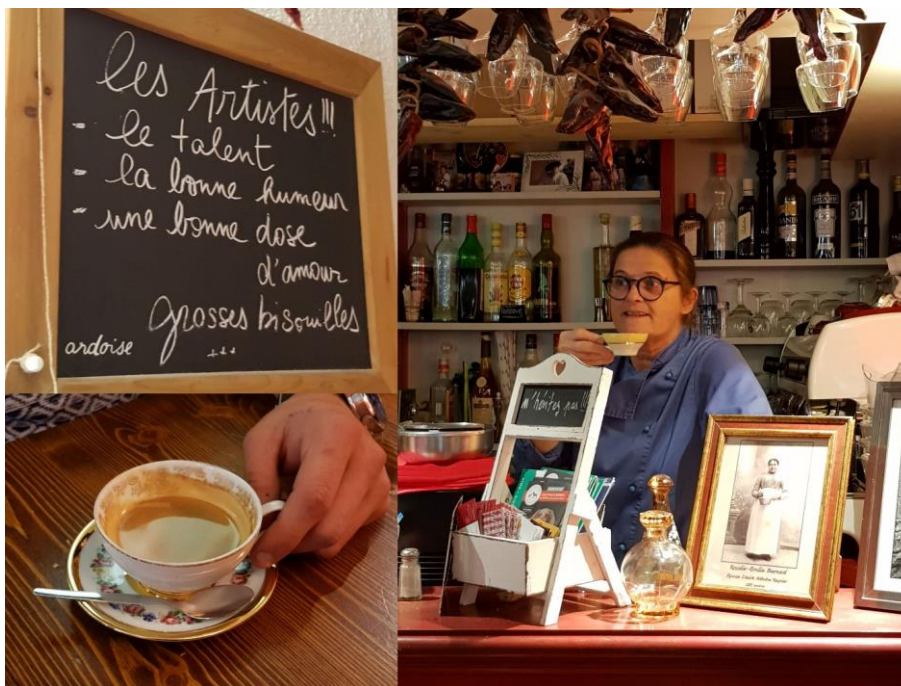 les Artistes !!!
- le talent
- la bonne humeur
- une bonne dose
d'amour
grosses bisouilles
+++
ardoise
n'hésitez pas !!!
51